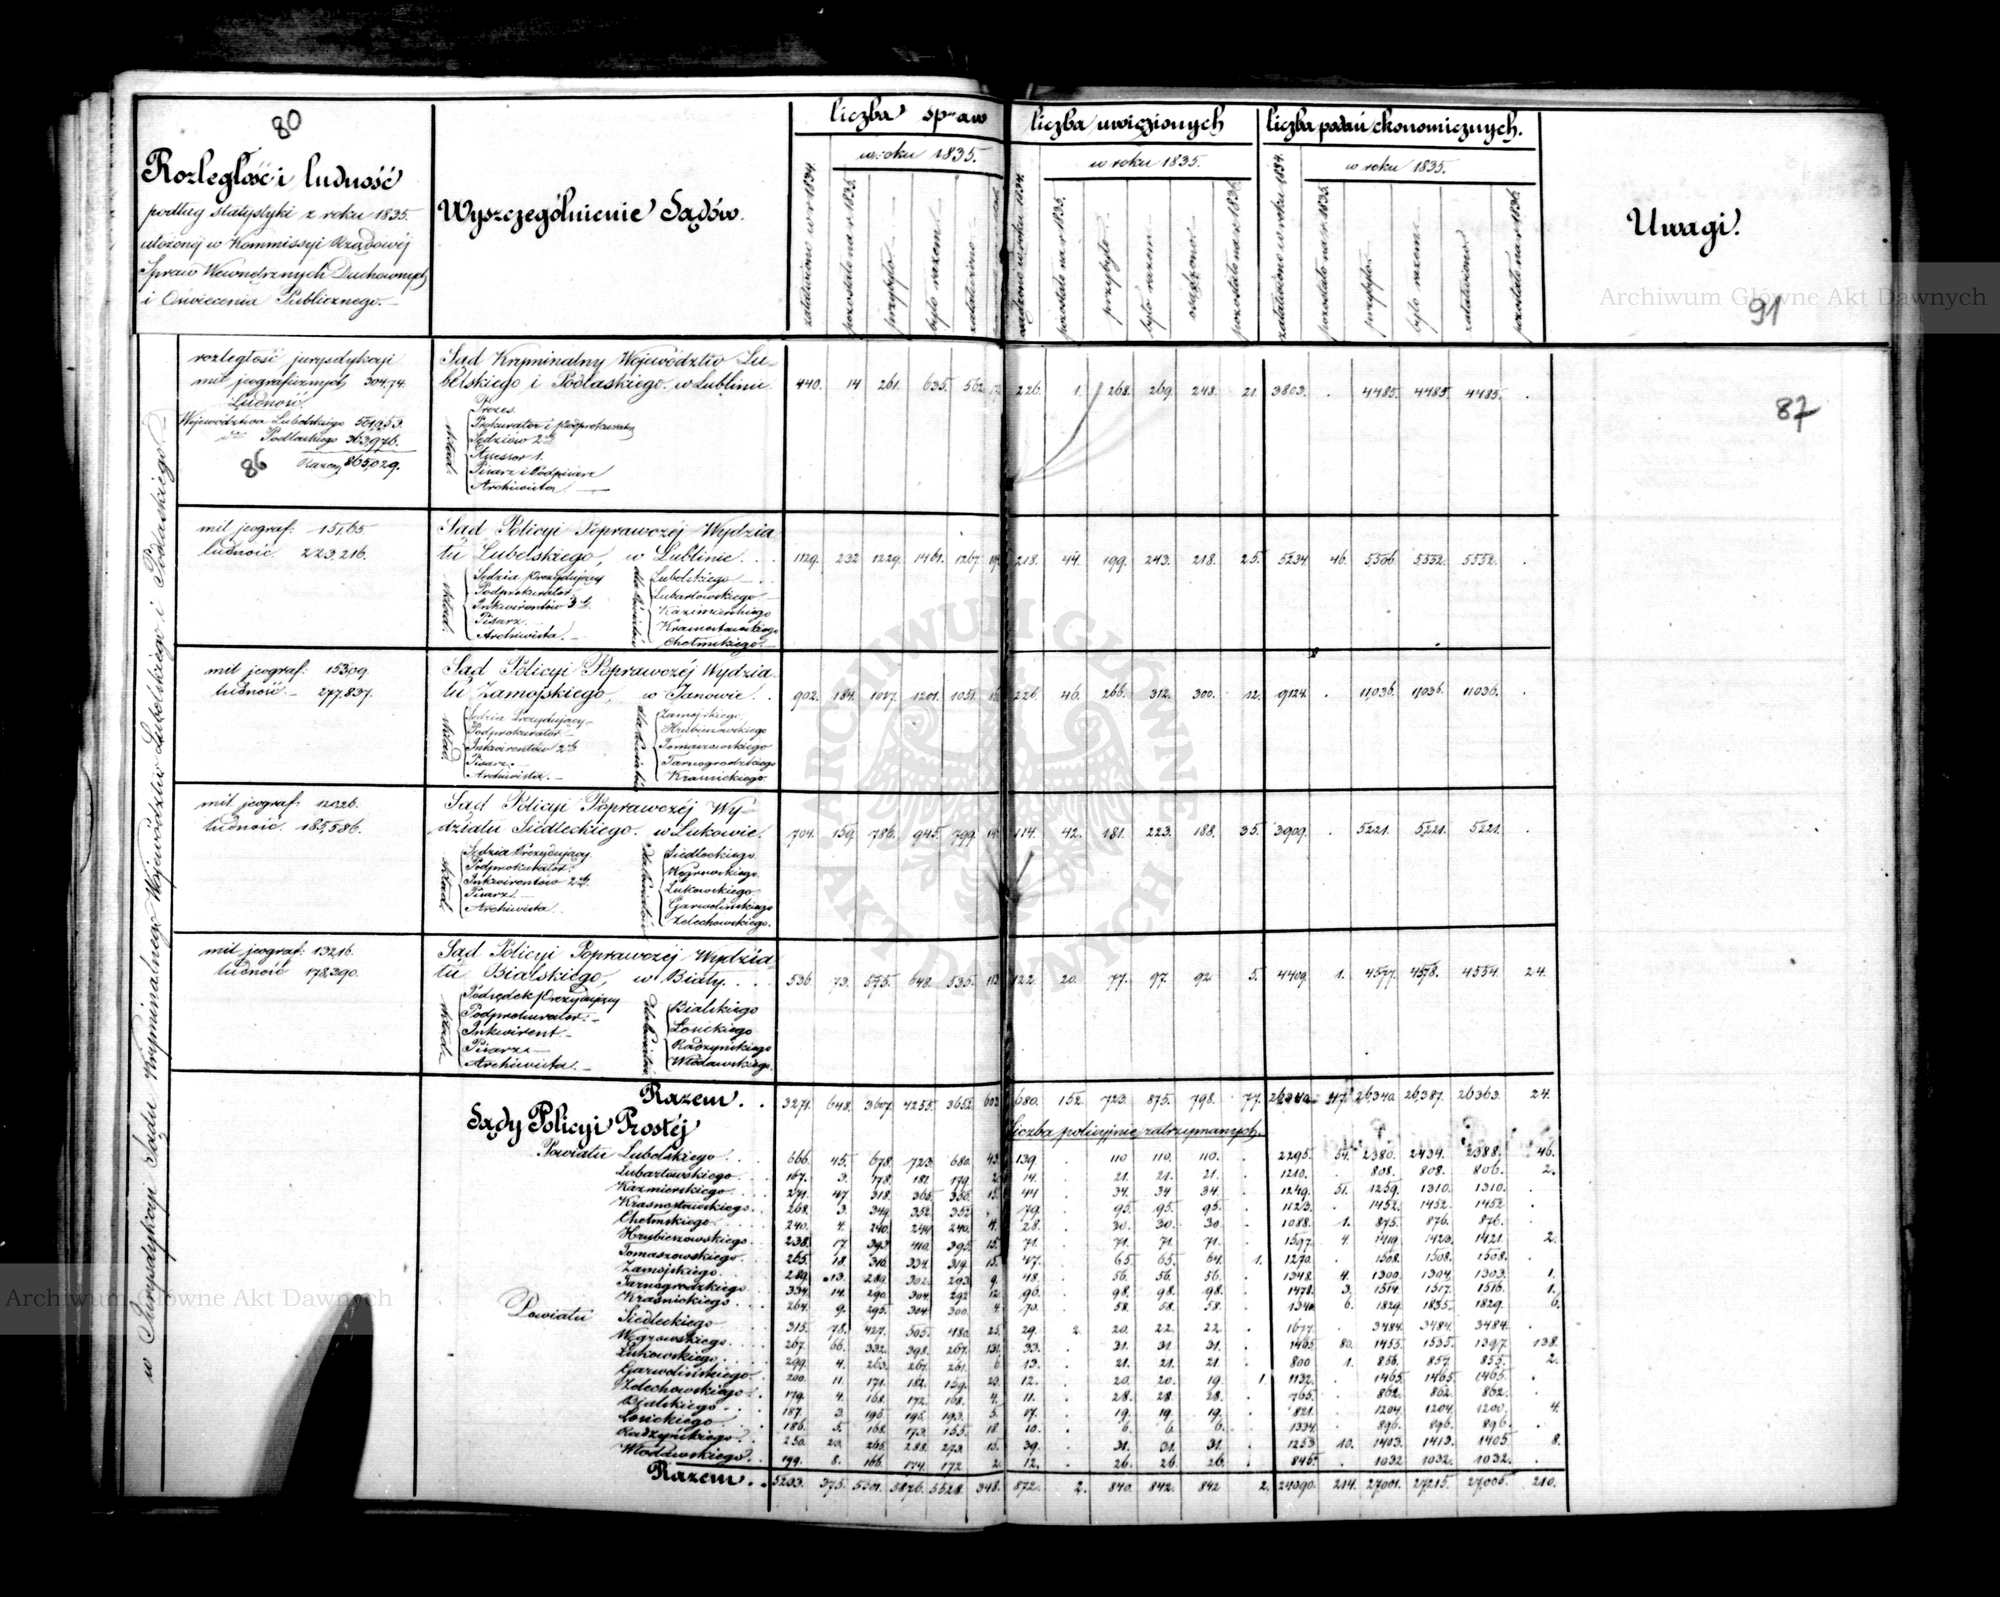 80
Rozległość i ludność
podług statystyki z roku 1835.
ułożonéj w Kommissyi Rządowéj
Spraw Wewnętrznych Duchownych
i Oświecenia Publicznego.
Wyszczególnienie Sądów.
liczba spraw
załatwiono w r 1834.
w roku 1835.
pozostało na r 1835.
przybyło
było razem
załatwiono
liczba uwięzionych
w roku 1835.
pozostało na r 1835.
przybyło
było razem
osądzono
pozostało na r 1836.
liczba podań ekonomicznych.
załatwiono w roku 1834.
w roku 1835.
pozostało na r 1835.
przybyło
było razem
załatwiono
pozostało na r 1836.
Uwagi.
91
87
Archiwum Główne Akt Dawnych
w Jurysdykcyi Sądu Kryminalnego Województw Lubelskiego i Podlaskiego
rozległość jurysdykcyi
mil jeograficznych 304,74.
Ludność.
Województwa Lubelskiego 501,053.
Podlaskiego 363,976.
Razem 865,029.
86
Sąd Kryminalny Województw Lu-
belskiego i Podlaskiego w Lublinie. 440. 14 261. 635. 562. 226. 1. 268. 269. 248. 21. 3803. . 4485. 4485. 4485. .
skład:
Prezes.
Prokurator i Podprokurator
Sędziów 2
Assessor 1.
Pisarz i Podpisarz
Archiwista
mil jeograf: 75,65.
ludność 223,216.
Sąd Policyi Poprawczéj Wydzia
łu Lubelskiego, w Lublinie 1129. 232 1229. 1461. 1267. 218. 44. 199. 243. 218. 25. 5234. 46. 5506. 5552. 5552. .
skład:
Sędzia Prezydujący
Podprokurator
Inkwirentów 3
Pisarz
Archiwista
dla Powiatów
Lubelskiego
Lubartowskiego
Kazimierskiego
Krasnostawskiego
Chełmskiego
mil jeograf: 75,09.
ludność 277,837.
Sąd Policyi Poprawczéj Wydzia
łu Zamojskiego, w Janowie 902. 184. 1017. 1201. 1051. 226. 46. 266. 312. 300. 12. 9124. . 11036. 11036. 11036. .
skład
Sędzia Prezydujący
Podprokurator
Inkwirentów 2
Pisarz
Archiwista
dla Powiatów
Zamojskiego
Hrubieszowskiego
Tomaszowskiego
Tarnogrodzkiego
Kraśnickiego
mil jeograf: 120,26.
ludność 185,586.
Sąd Policyi Poprawczéj Wy-
działu Siedleckiego w Łukowie. 704. 159. 786. 945. 799. 114. 42. 181. 223. 188. 35. 3909. . 5221. 5221. 5221. .
skład:
Sędzia Prezydujący
Podprokurator
Inkwirentów 2
Pisarz
Archiwista
dla Powiatów
Siedleckiego
Węgrowskiego
Łukowskiego
Garwolińskiego
Żelechowskiego
mil jeograf: 132,16.
ludność 178,390.
Sąd Policyi Poprawczéj Wydzia
łu Bialskiego, w Biały 536. 73. 575. 648. 535. 113. 122. 20. 77. 97. 92. 5. 4409. 1. 4577. 4578. 4554. 24.
skład:
Podsędek Prezydujący
Podprokurator
Inkwirent
Pisarz
Archiwista
dla Powiatów
Bialskiego
Łosickiego
Radzyńskiego
Włodawskiego
Razem 3271. 648. 3607. 4255. 3652. 603 680. 152. 723. 875. 798. 77. 47. 26,340. 26,387. 26,363. 24.
Sądy Policyi Prostéj
liczba policyjnie zatrzymanych.
Powiatu Lubelskiego 666. 45. 678. 723. 680. 43. 139. . 110 110. 110. . 2295. 54. 2380. 2434. 2388. 46.
Lubartowskiego 167. 3. 178. 181. 179. 2. 14. . 21. 21. 21. . 1210. . 808. 808. 806. 2.
Kazimierskiego 271. 47. 318. 365. 350. 15. 44 . 34. 34 34. . 1249. 51. 1259. 1310. 1310. .
Krasnostawskiego 268. 3. 349. 352. 352. . 79. . 95. 95. 95. . 1123. . 1452. 1452. 1452 .
Chełmskiego 240. 4. 240. 244. 240. 4. 28. . 30. 30. 30. . 1088. 1. 875. 876. 876. .
Hrubieszowskiego 238. 17. 393. 410. 395. 15. 71. . 71. 71. 71. . 1597. 4. 1419. 1423. 1421. 2.
Tomaszowskiego 265. 18. 316. 334. 319. 15. 47. . 65. 65. 64. 1. 1270. . 1508. 1508. 1508. .
Zamojskiego 289. 13. 289. 302. 293. 9. 48. . 56. 56. 56. . 1348. 4. 1300. 1304. 1303. 1.
Tarnogrodzkiego 334. 14. 290. 304. 292. 12. 96. . 98. 98. 98. . 1478. 3. 1514. 1517. 1516. 1.
Kraśnickiego 264. 9. 295. 304. 300. 4. 70. . 58. 58. 58. . 1340 6. 1829. 1835. 1829. 6.
Powiatu Siedleckiego 315. 78. 427. 505. 480. 25. 29. 2. 20. 22. 22. . 1677. . 3484. 3484. 3484. .
Węgrowskiego 267. 66. 332. 398. 267. 131. 33. . 31. 31. 31. . 1465. 80. 1455. 1535. 1397. 138.
Łukowskiego 299. 4. 263. 267. 261. 6. 13. . 21. 21. 21. . 800 1. 856. 857. 855. 2.
Garwolińskiego 200. 11. 171. 182. 159. 23. 12. . 20. 20. 19. 1. 1132. . 1465. 1465. 1465. .
Żelechowskiego 179. 4. 168. 172. 168. 4. 11. . 28. 28. 28. . 765. . 862. 862. 862. .
Bialskiego 187. 3. 195. 193. 5. 17. . 19. 19. 19. . 821. . 1204. 1204. 1200. 4.
Łosickiego 186. 5. 168. 173. 155. 18. 10. . 6. 6. 6. . 1334. . 896. 896. 896. .
Radzyńskiego 250. 23. 265. 288. 273. 15. 39. . 31. 31. 31. . 1253 10. 1403. 1413. 1405 8.
Włodawskiego 199. 8. 166. 174. 172. 2. 12. . 26. 26. 26. . 845. . 1032 1032. 1032. .
Razem 375. 5501. 5876. 5528. 348. 872. 2. 840. 842. 842 2. 24090. 214. 27001. 27215. 27,005. 210.
Archiwum Główne Akt Dawnych
ARCHIWUM GŁÓWNE AKT DAWNYCH